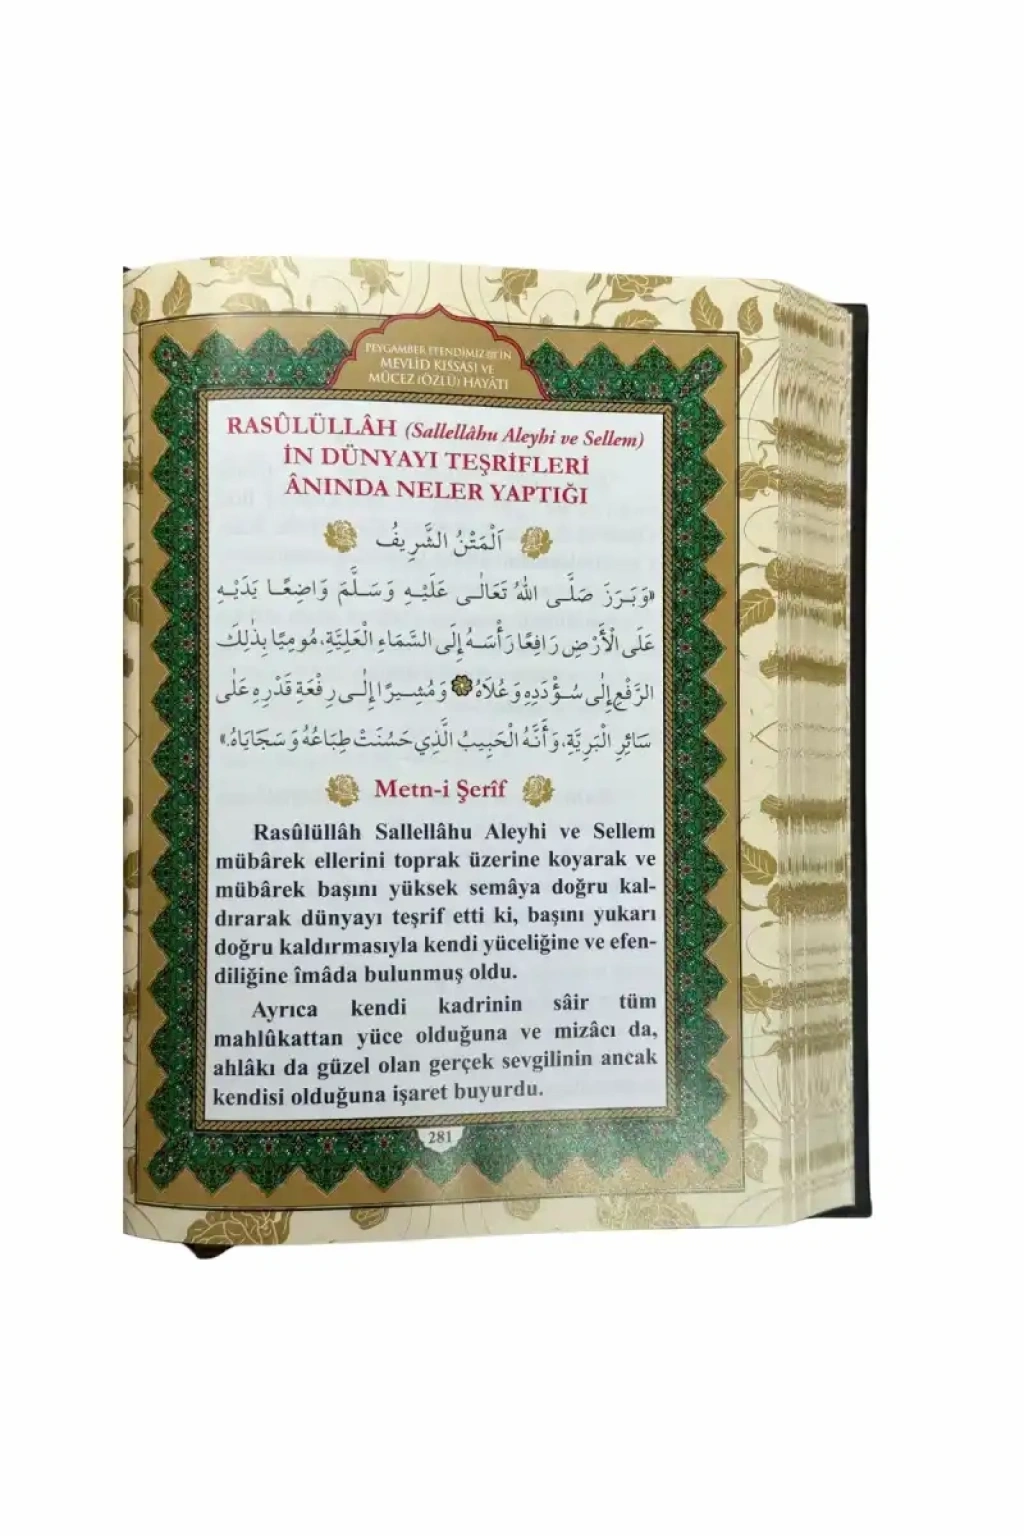 PEYGAMBER EFENDİMİZ ﷺ'İN
MEVLİD KISSASI VE
MÛCEZ (ÖZLÜ) HAYÂTI
RASÛLÜLLÂH (Sallellâhu Aleyhi ve Sellem)
İN DÜNYAYI TEŞRİFLERİ
ÂNINDA NELER YAPTIĞI
اَلْمَتْنُ الشَّرِيفُ
«وَبَرَزَ صَلَّى اللّٰهُ تَعَالٰى عَلَيْهِ وَسَلَّمَ وَاضِعًا يَدَيْهِ
عَلَى الْأَرْضِ رَافِعًا رَأْسَهُ إِلَى السَّمَاءِ الْعَلِيَّةِ، مُومِيًا بِذٰلِكَ
الرَّفْعِ إِلٰى سُؤْدَدِهِ وَعُلَاهُ وَمُشِيرًا إِلٰى رِفْعَةِ قَدْرِهِ عَلٰى
سَائِرِ الْبَرِيَّةِ، وَأَنَّهُ الْحَبِيبُ الَّذِي حَسُنَتْ طِبَاعُهُ وَسَجَايَاهُ.»
Metn-i Şerîf
Rasûlüllâh Sallellâhu Aleyhi ve Sellem
mübârek ellerini toprak üzerine koyarak ve
mübârek başını yüksek semâya doğru kal-
dırarak dünyayı teşrif etti ki, başını yukarı
doğru kaldırmasıyla kendi yüceliğine ve efen-
diliğine îmâda bulunmuş oldu.
Ayrıca kendi kadrinin sâir tüm
mahlûkattan yüce olduğuna ve mizâcı da,
ahlâkı da güzel olan gerçek sevgilinin ancak
kendisi olduğuna işaret buyurdu.
281